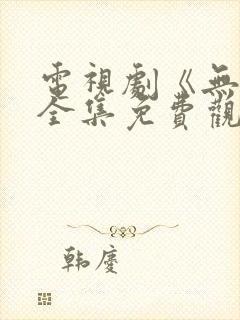 電視劇《無
全集免費觀
韩慶